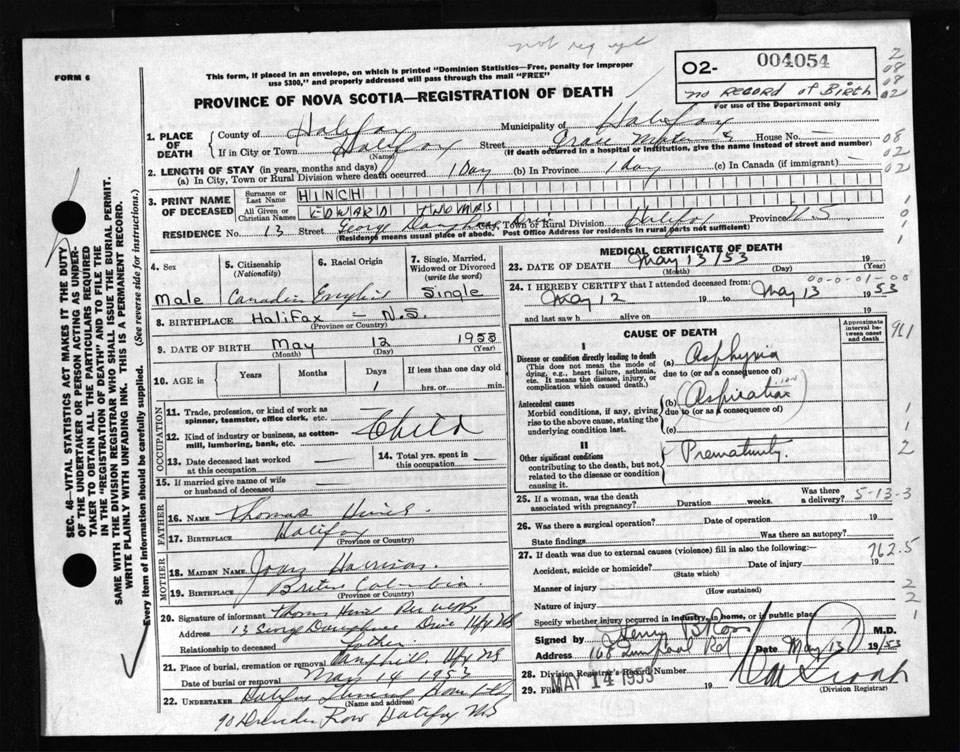 not reg
FORM 6
This form, if placed in an envelope, on which is printed "Dominion Statistics—Free, penalty for improper
use $300," and properly addressed will pass through the mail "FREE"
02- 004054
no RECORD of Birth
For use of the Department only
PROVINCE OF NOVA SCOTIA—REGISTRATION OF DEATH
1. PLACE OF DEATH
County of Halifax Municipality of Halifax
If in City or Town Halifax Street Grace House No. —
(Name) (If death occurred in a hospital or institution, give the name instead of street and number)
2. LENGTH OF STAY (in years, months and days)
(a) In City, Town or Rural Division where death occurred 1 Day (b) In Province 1 day (c) In Canada (if immigrant) —
3. PRINT NAME OF DECEASED
Surname or Last Name HINCH
All Given or Christian Names EDWARD THOMAS
RESIDENCE No. 13 Street George Dauphinee City, Town or Rural Division Halifax Province N S
(Residence means usual place of abode. Post Office Address for residents in rural parts not sufficient)
4. Sex
Male
5. Citizenship (Nationality)
Canadian
6. Racial Origin
English
7. Single, Married, Widowed or Divorced (write the word)
Single
8. BIRTHPLACE Halifax — N.S.
(Province or Country)
9. DATE OF BIRTH May 12 1953
(Month) (Day) (Year)
10. AGE in Years Months Days If less than one day old
1 hrs. or min.
OCCUPATION
11. Trade, profession, or kind of work as spinner, teamster, office clerk, etc.
Child
12. Kind of industry or business, as cotton-mill, lumbering, bank, etc.
13. Date deceased last worked at this occupation
14. Total yrs. spent in this occupation
15. If married give name of wife or husband of deceased
FATHER
16. NAME Thomas
17. BIRTHPLACE Halifax
(Province or Country)
MOTHER
18. MAIDEN NAME Joan Harrison
19. BIRTHPLACE British Columbia
(Province or Country)
20. Signature of informant Thomas
Address 13 George Dauphinee Drive Hfx NS
Relationship to deceased Father
21. Place of burial, cremation or removal Hfx NS
Date of burial or removal May 14 1953
22. UNDERTAKER Halifax Funeral Home
(Name and address)
90 Row Halifax N.S
MEDICAL CERTIFICATE OF DEATH
23. DATE OF DEATH May 13/53 19
(Month) (Day) (Year)
00-0-01-00
24. I HEREBY CERTIFY that I attended deceased from:
May 12 19 to May 13 1953
and last saw h alive on 19
CAUSE OF DEATH
Approximate interval between onset and death
I
Disease or condition directly leading to death
(This does not mean the mode of dying, e.g., heart failure, asthenia, etc. It means the disease, injury, or complication which caused death.)
(a) Asphyxia
due to (or as a consequence of)
Antecedent causes
Morbid conditions, if any, giving rise to the above cause, stating the underlying condition last.
(b) Aspiration
due to (or as a consequence of)
(c)
II
Other significant conditions contributing to the death, but not related to the disease or condition causing it.
Prematurity.
25. If a woman, was the death associated with pregnancy? Duration weeks. Was there a delivery? 5-13-3
26. Was there a surgical operation? Date of operation 19
State findings Was there an autopsy?
27. If death was due to external causes (violence) fill in also the following:—
762.5
Accident, suicide or homicide? Date of injury 19
(State which)
Manner of injury
(How sustained)
Nature of injury
Specify whether injury occurred in industry, home, or in public place
Signed by Henry B Ross M.D.
Address 168 Rd Date May 13 19/53
28. Division Registrar's Record Number
29. Filed MAY 14 1953
(Division Registrar)
SEC. 46—VITAL STATISTICS ACT MAKES IT THE DUTY
OF THE UNDERTAKER OR PERSON ACTING AS UNDER-
TAKER TO OBTAIN ALL THE PARTICULARS REQUIRED
IN THE "REGISTRATION OF DEATH" AND TO FILE THE
SAME WITH THE DIVISION REGISTRAR WHO SHALL ISSUE THE BURIAL PERMIT.
WRITE PLAINLY WITH UNFADING INK. THIS IS A PERMANENT RECORD.
Every item of information should be carefully supplied. (See reverse side for instructions.)
2
08
08
02
08
02
02
1
0
1
961
1
1
2
2
2
1